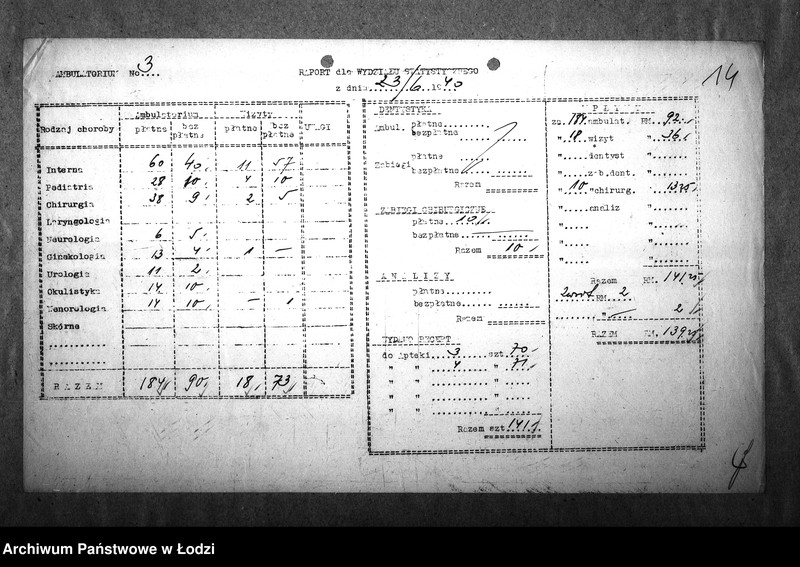 AMBULATORIUM No 3
RAPORT dla WYDZIAŁU STATYSTYCZNEGO
z dnia 23/6 1940
14
Rodzaj choroby Ambulatorium Wizyty UWAGI
płatne bez płatne płatne bez płatne
Interna 60 40 11 57
Pediatria 28 10 4 10
Chirurgia 38 9 2 5
Laryngologia
Neurologia 6 5
Ginekologia 13 4 1 —
Urologia 11 2
Okulistyka 14 10
Wenerologia 14 10 — 1
Skórne
RAZEM 184 90 18 73
DENTYSTYKA
Ambul. płatne
bezpłatne
Zabiegi płatne
bezpłatne
Razem
ZABIEGI CHIRURGICZNE
płatne 10
bezpłatne
Razem 10
ANALIZY
płatne
bezpłatne
Razem
WYDANO RECEPT
do Apteki 3 szt. 70
" " 4 " 71
" " "
" " "
Razem szt 141
za 184 ambulat. RM. 92
" 18 wizyt " 36
" dentyst "
" zab.dent. "
" 10 " chirurg. " 13 25
" analiz "
" "
" "
Razem RM. 141 25
zwrot RM. 2
" 2
RAZEM RM. 139 25
Archiwum Państwowe w Łodzi